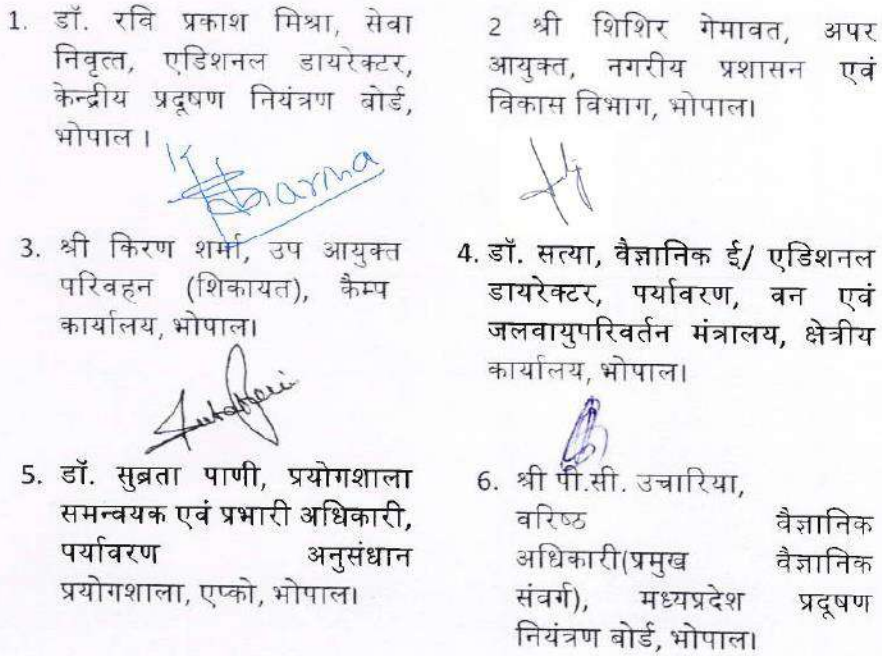 1. डॉ. रवि प्रकाश मिश्रा, सेवा
निवृत्त, एडिशनल डायरेक्टर,
केन्द्रीय प्रदूषण नियंत्रण बोर्ड,
भोपाल ।
2 श्री शिशिर गेमावत, अपर
आयुक्त, नगरीय प्रशासन एवं
विकास विभाग, भोपाल।
KSharma
3. श्री किरण शर्मा, उप आयुक्त
परिवहन (शिकायत), कैम्प
कार्यालय, भोपाल।
4. डॉ. सत्या, वैज्ञानिक ई/ एडिशनल
डायरेक्टर, पर्यावरण, वन एवं
जलवायुपरिवर्तन मंत्रालय, क्षेत्रीय
कार्यालय, भोपाल।
5. डॉ. सुब्रता पाणी, प्रयोगशाला
समन्वयक एवं प्रभारी अधिकारी,
पर्यावरण अनुसंधान
प्रयोगशाला, एप्को, भोपाल।
6. श्री पी.सी. उचारिया,
वरिष्ठ वैज्ञानिक
अधिकारी(प्रमुख वैज्ञानिक
संवर्ग), मध्यप्रदेश प्रदूषण
नियंत्रण बोर्ड, भोपाल।